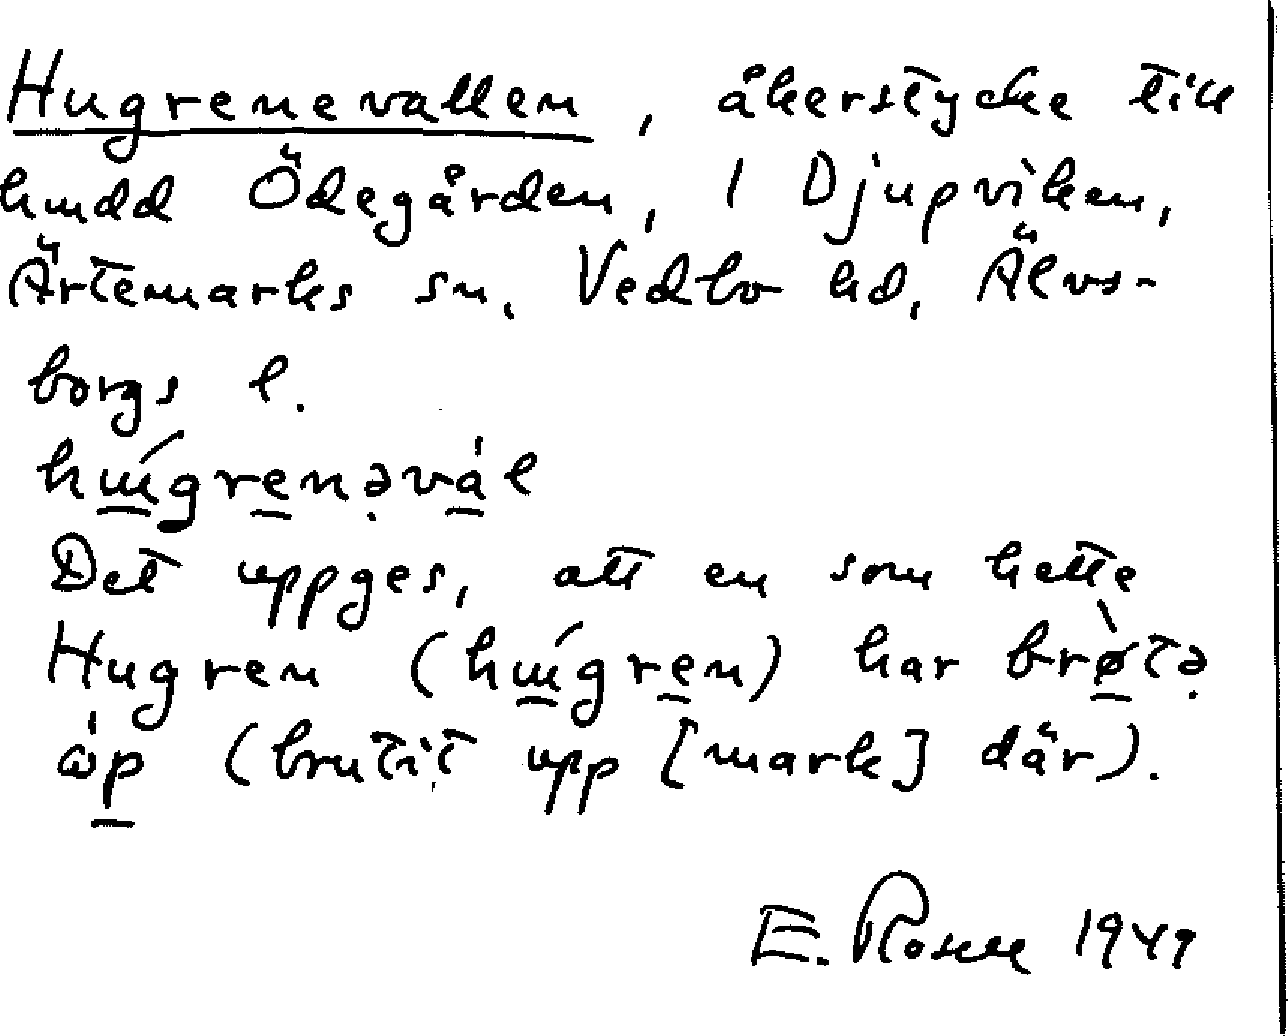 Hugrenevallen, åkerstycke till
hmdd Ödegården, 1 Djupviken,
Ärtemarks sn, Vedbo hd, Älvs-
borgs l.
Det uppges, att en som hette
Hugren (húgren) har brø̀tə
åp (brutit upp [mark] där).
E. Rosell 1949